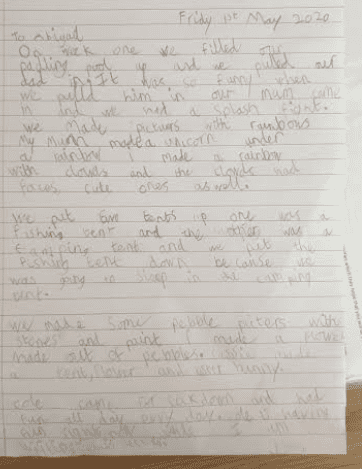 Friday 1st May 2020
To Abigail
On week one we filled our
padling pool up and we pulled our
dad in. It was so funny when
we pulled him in our mum came
in and we had a splash fight.
we made pictures with rambows
My Mum made a unicorn under
a rainbow I made a rainbow
with clouds and the clouds had
faces, cute ones as well.
We put two tents up one was a
fishing tent and the other was a
camping tent and we put the
fishing tent down because we
was going to sleep in the camping
tent.
we made some pebble picters with
stones and paint I made a flower
made out of pebbles. made
a tent, flower and bunny.
came out and had
fun all day every day. having
while I am